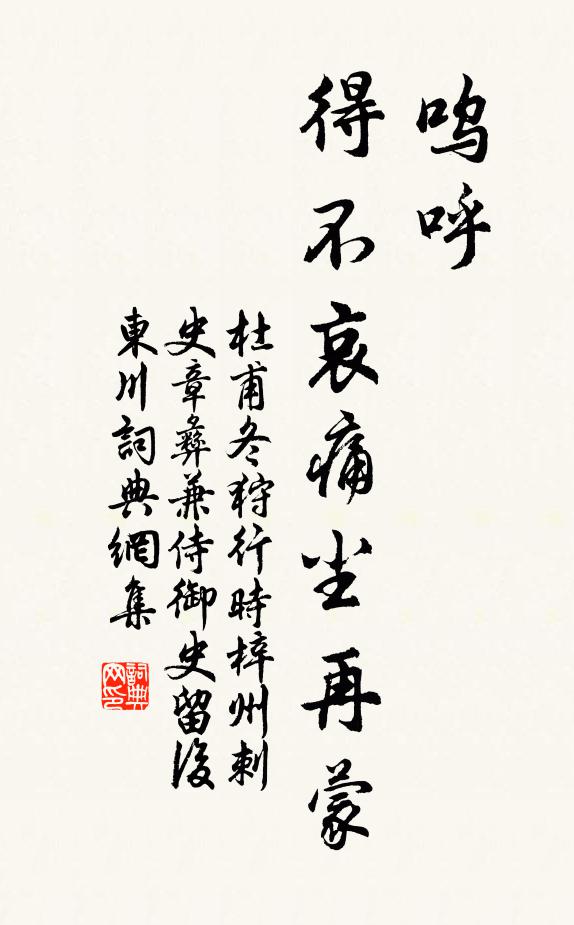 嗚呼
得不哀痛尘再蒙
杜甫冬狩行時梓州刺
史章彝兼侍御史留後
東川詞典網集
詞典
网印